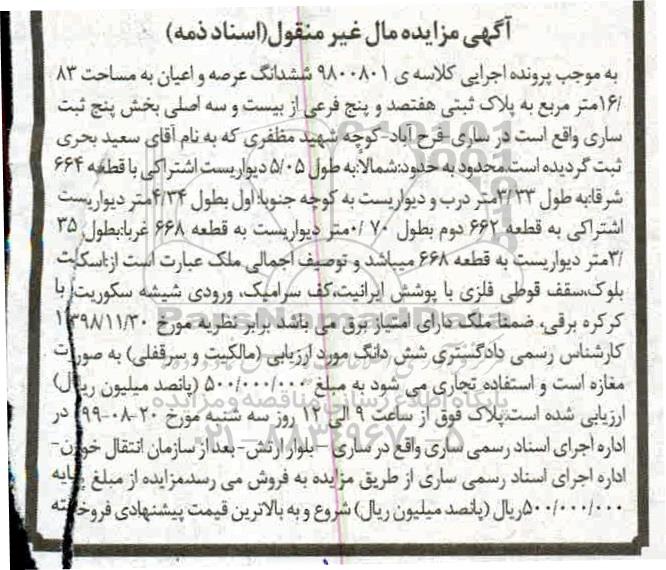 آگهی مزایده مال غیر منقول(اسناد ذمه)
به موجب پرونده اجرایی کلاسه ی ۹۸۰۰۸۰۱ ششدانگ عرصه و اعیان به مساحت ۸۳
/۱۶متر مربع به پلاک ثبتی هفتصد و پنج فرعی از بیست و سه اصلی بخش پنج ثبت
ساری واقع است در ساری-فرح آباد-کوچه شهید مظفری که به نام آقای سعید بحری
ثبت گردیده است.محدود به حدود:شمالا:به طول ۵/۰۵ دیواریست اشتراکی با قطعه ۶۶۴
شرقا:به طول ۳/۳۳متر درب و دیواریست به کوچه جنوبا: اول بطول ۴/۳۴متر دیواریست
اشتراکی به قطعه ۶۶۲ دوم بطول ۷۰ /۰متر دیواریست به قطعه ۶۶۸ غربا:بطول ۳۵
/۳متر دیواریست به قطعه ۶۶۸ میباشد و توصیف اجمالی ملک عبارت است از:اسکلت
بلوک،سقف قوطی فلزی با پوشش ایرانیت،کف سرامیک، ورودی شیشه سکوریت، با
کرکره برقی، ضمنا ملک دارای امتیاز برق می باشد برابر نظریه مورخ ۱۳۹۸/۱۱/۳۰
کارشناس رسمی دادگستری شش دانگ مورد ارزیابی (مالکیت و سرقفلی) به صورت
مغازه است و استفاده تجاری می شود به مبلغ ۵۰۰/۰۰۰/۰۰۰ (پانصد میلیون ریال)
ارزیابی شده است.پلاک فوق از ساعت ۹ الی ۱۲ روز سه شنبه مورخ ۲۰-۰۸-۹۹ در
اداره اجرای اسناد رسمی ساری واقع در ساری - بلوار ارتش- بعد از سازمان انتقال خون-
اداره اجرای اسناد رسمی ساری از طریق مزایده به فروش می رسد.مزایده از مبلغ پایه
۵۰۰/۰۰۰/۰۰۰ریال (پانصد میلیون ریال) شروع و به بالاترین قیمت پیشنهادی فروخته
ParsNamadData
پایگاه اطلاع رسانی مناقصه و مزایده
۰۲۱-۸۸۳۴۹۶۷۰-۵